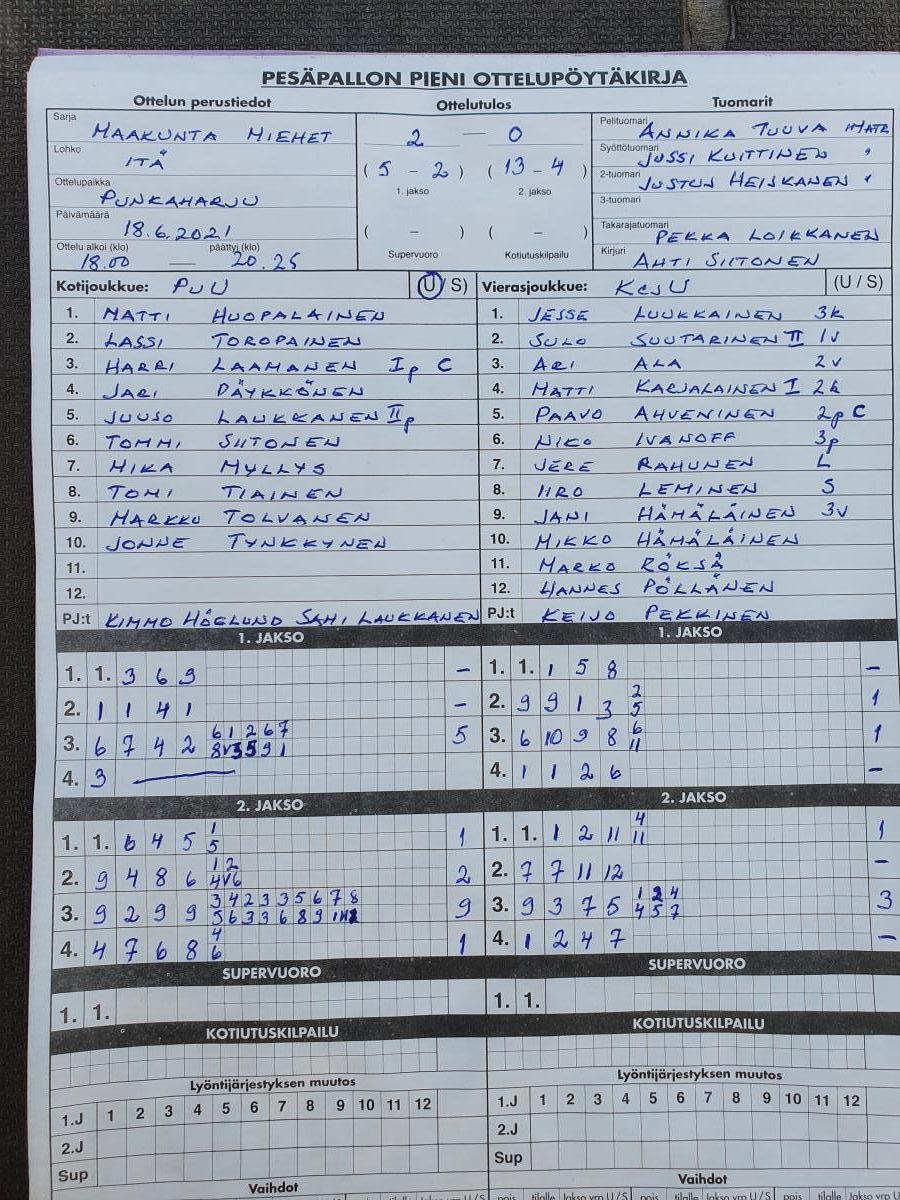 PESÄPALLON PIENI OTTELUPÖYTÄKIRJA
Ottelun perustiedot
Sarja
MAAKUNTA MIEHET
Lohko
ITÄ
Ottelupaikka
PUNKAHARJU
Päivämäärä
18.6.2021
Ottelu alkoi (klo) päättyi (klo)
18.00 — 20.25
Ottelutulos
2 — 0
( 5 - 2 ) ( 13 - 4 )
1. jakso 2. jakso
( - ) ( - )
Supervuoro Kotiutuskilpailu
Tuomarit
Pelituomari ANNIKA TUUVA IMATR
Syöttötuomari JUSSI KUITTINEN "
2-tuomari JUSTUN HEISKANEN "
3-tuomari
Takarajatuomari PEKKA LOIKKANEN
Kirjuri AHTI SIITONEN
Kotijoukkue: PUU (U / S)
1. MATTI HUOPALAINEN
2. LASSI TOROPAINEN
3. HARRI LAAMANEN Ip C
4. JARI PÄYKKÖNEN
5. JUUSO LAUKKANEN IIp
6. TOMMI SIITONEN
7. MIKA MYLLYS
8. TOMI TIAINEN
9. MARKKU TOLVANEN
10. JONNE TYNKKYNEN
11.
12.
PJ:t KIMMO HÖGLUND SAMI LAUKKANEN
Vierasjoukkue: KesU (U / S)
1. JESSE LUUKKAINEN 3k
2. SULO SUUTARINEN II 1v
3. ARI ALA 2v
4. MATTI KARJALAINEN I 2k
5. PAAVO AHVENINEN 2p C
6. NIKO IVANOFF 3p
7. JERE RAHUNEN L
8. IIRO LEMINEN S
9. JANI HÄMÄLÄINEN 3v
10. MIKKO HÄMÄLÄINEN
11. MARKO RÖKSÄ
12. HANNES PÖLLÄNEN
PJ:t KEIJO PEKKINEN
1. JAKSO
1. 1. 3 6 9 -
2. 1 1 4 1 -
3. 6 7 4 2 6 1 2 6 7 5
4. 3 —
1. JAKSO
1. 1. 1 5 8 -
2. 9 9 1 3 2 5 1
3. 6 10 9 8 6 11 1
4. 1 1 2 6 -
2. JAKSO
1. 1. 6 4 5 1 5 1
2. 9 4 8 6 1 2 4 V6 2
3. 9 2 9 9 3 4 2 3 3 5 6 7 8
5 6 3 3 6 8 9 9
4. 4 7 6 8 4 6 1
2. JAKSO
1. 1. 1 2 11 4 11 1
2. 7 7 11 12 -
3. 9 3 7 5 1 2 4 4 5 7 3
4. 1 2 4 7 -
SUPERVUORO
1. 1.
SUPERVUORO
1. 1.
KOTIUTUSKILPAILU
KOTIUTUSKILPAILU
Lyöntijärjestyksen muutos
1.J 1 2 3 4 5 6 7 8 9 10 11 12
2.J
Sup
Vaihdot
Lyöntijärjestyksen muutos
1.J 1 2 3 4 5 6 7 8 9 10 11 12
2.J
Sup
Vaihdot